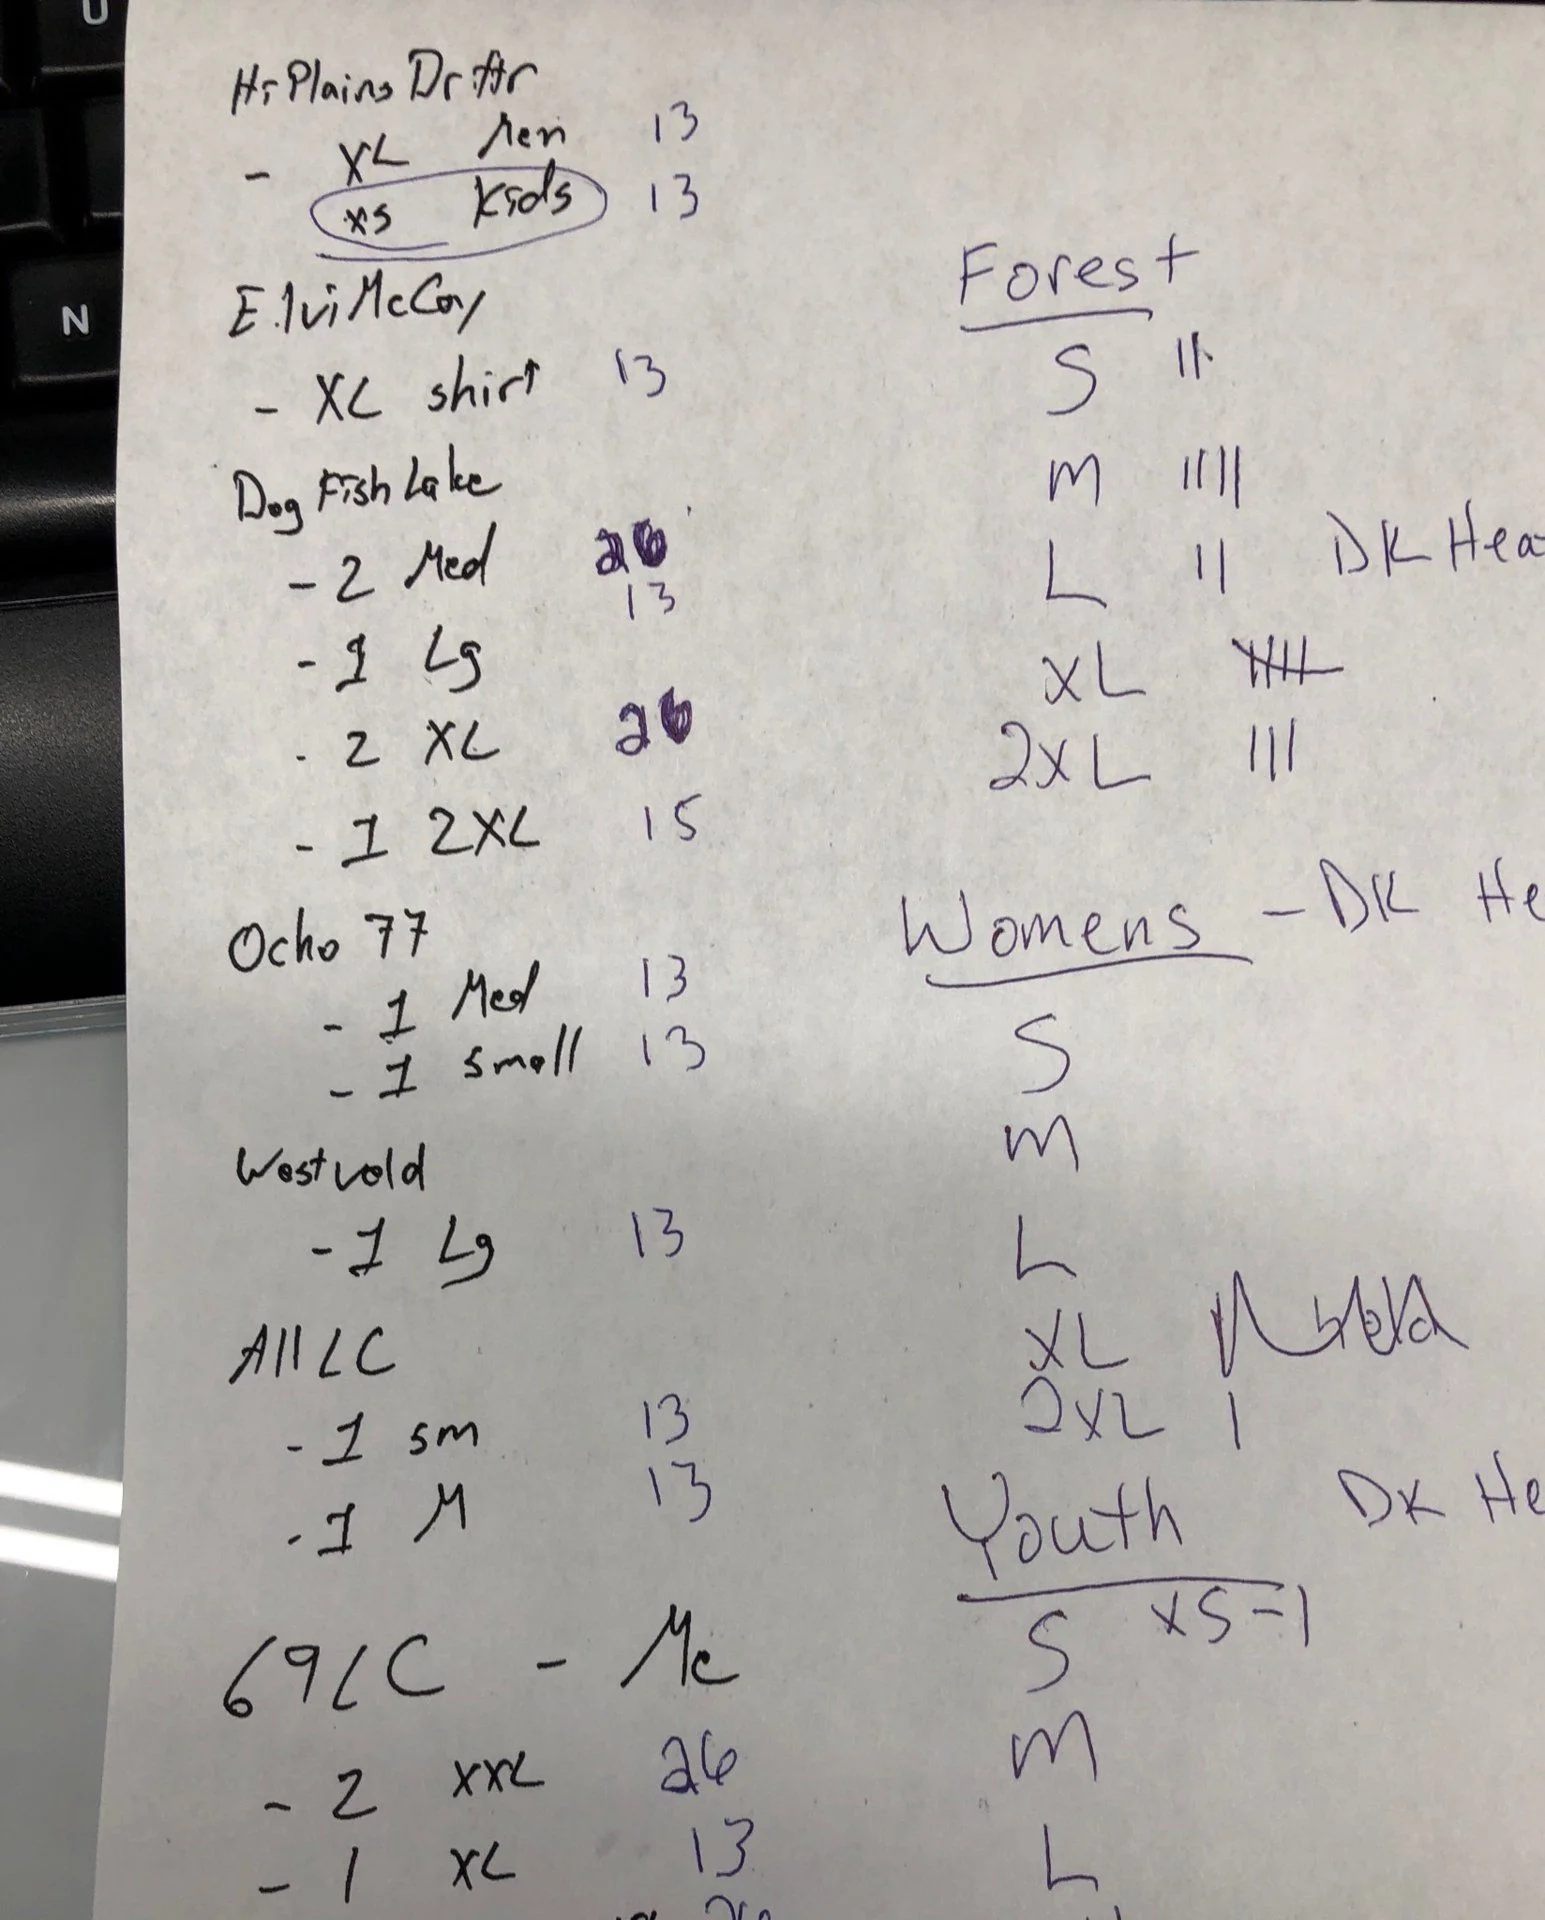 U
N
Hi Plains Dr
- XL Men 13
xs Kids 13
McCoy
- XL shirt 13
Dog Fish Lake
- 2 Med 26
13
- 1 Lg
- 2 XL 26
- 1 2XL 15
Ocho 77
- 1 Med 13
- 1 small 13
Westvold
- 1 Lg 13
All LC
- 1 sm 13
- 1 M 13
69LC - Mc
- 2 XXL 26
- 1 XL 13
Forest
S |||
M ||||
L || DK Hea
XL 𝍸
2XL |||
Womens - DK He
S
M
L
XL
2XL |
Youth DK He
S XS-1
M
L